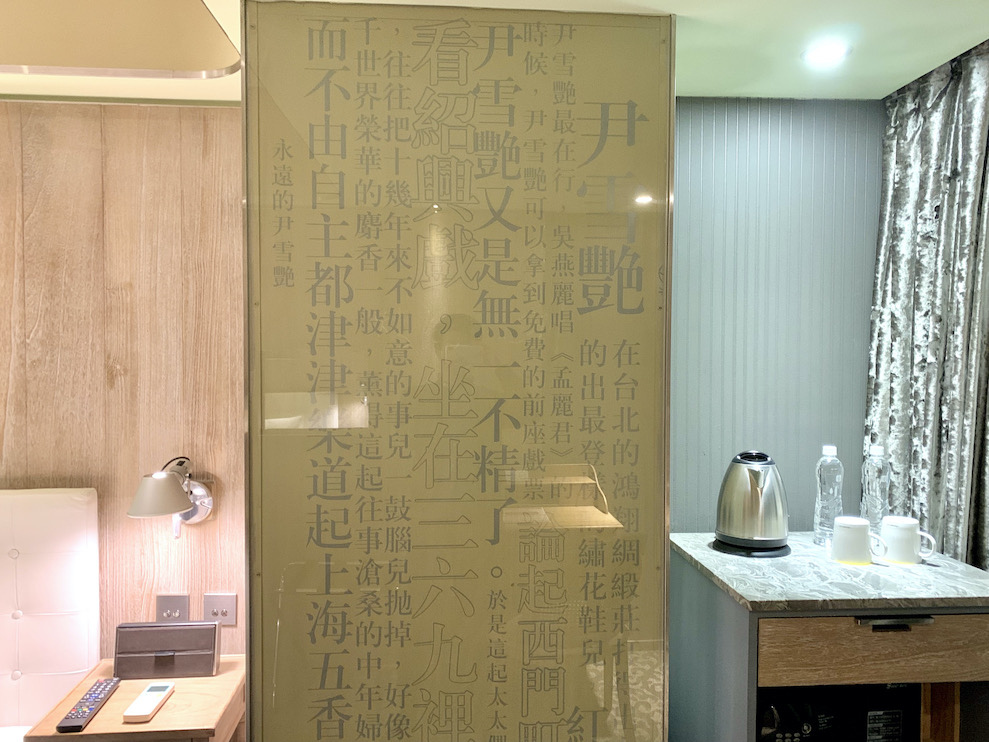 尹雪艷
在台北的鴻翔綢緞莊打
的出最登
繡花鞋兒
紅
尹雪艷最在行，吳燕麗唱《孟麗君》的
時候，尹雪艷可以拿到免費的前座戲票
論起西門町
尹雪艷又是無一不精了。於是這起太太們
看紹興戲，坐在三六九裡
，往往把十幾年來不如意的事兒一鼓腦兒拋掉，好像
千世界榮華的麝香一般，薰得這起往事滄桑的中年婦
而不由自主都津津樂道起上海五香
永遠的尹雪艷